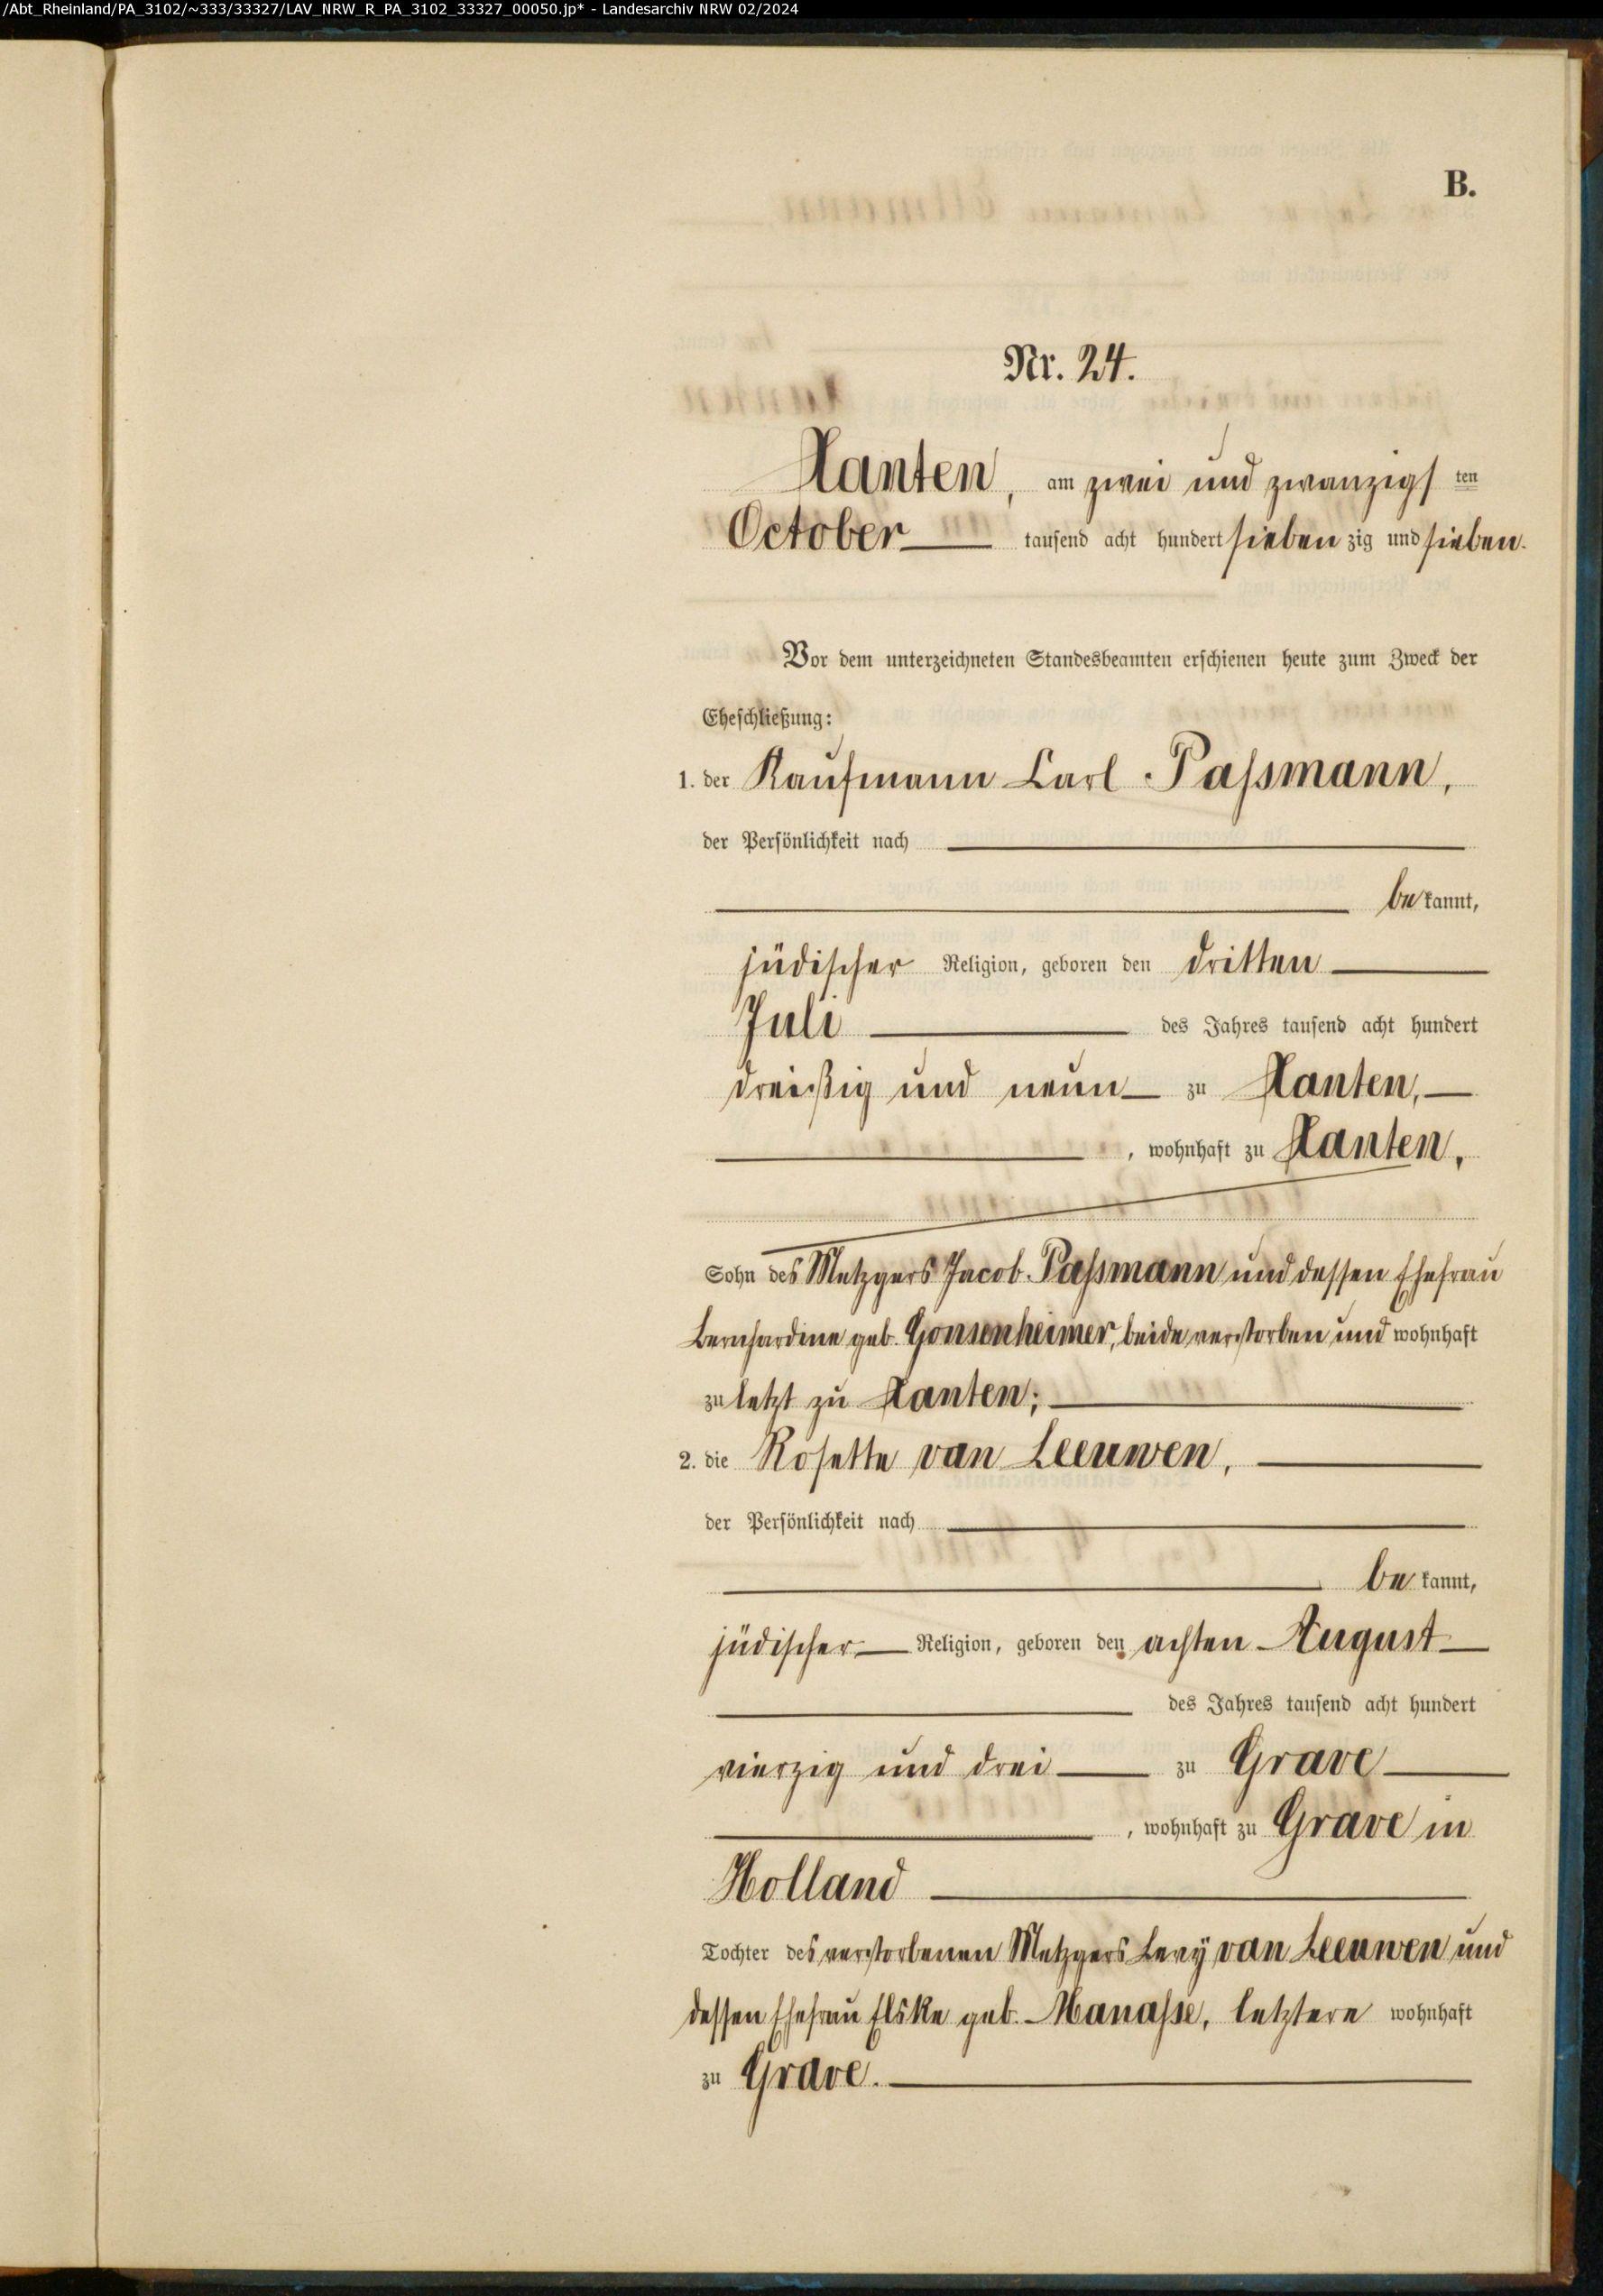 /Abt_Rheinland/PA_3102/~333/33327/LAV_NRW_R_PA_3102_33327_00050.jp* - Landesarchiv NRW 02/2024
B.
Nr. 24.
Xanten, am zwei und zwanzigsten
October tausend acht hundert siebenzig und sieben.
Vor dem unterzeichneten Standesbeamten erschienen heute zum Zweck der
Eheschließung:
1. der Kaufmann Carl Paſsmann,
der Persönlichkeit nach
bekannt,
jüdischer Religion, geboren den dritten
Juli des Jahres tausend acht hundert
dreißig und neun zu Xanten,
, wohnhaft zu Xanten,
Sohn des Metzgers Jacob Paſsmann und dessen Ehefrau
Bernhardine geb. Gonsenheimer, beide verstorben und wohnhaft
zuletzt zu Xanten;
2. die Rosette van Leeuwen,
der Persönlichkeit nach
bekannt,
jüdischer Religion, geboren den achten August
des Jahres tausend acht hundert
vierzig und drei zu Grave
, wohnhaft zu Grave in
Holland
Tochter des verstorbenen Metzgers Levÿ van Leeuwen und
dessen Ehefrau Elske geb. Manaſse, letztere wohnhaft
zu Grave.